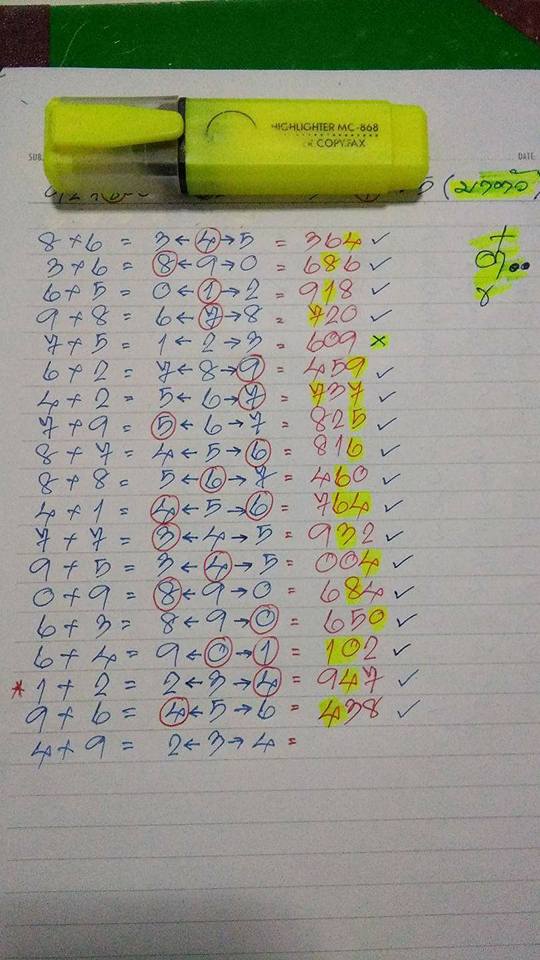 HIGHLIGHTER MC-868
COPY.FAX
SUB.
DATE
8 + 6 = 3 ← 4 → 5 = 364 ✓
3 + 6 = 8 ← 9 → 0 = 686 ✓
6 + 5 = 0 ← 1 → 2 = 918 ✓
9 + 8 = 6 ← 7 → 8 = 720 ✓
7 + 5 = 1 ← 2 → 3 = 609 ×
6 + 2 = 7 ← 8 → 9 = 459 ✓
4 + 2 = 5 ← 6 → 7 = 737 ✓
7 + 9 = 5 ← 6 → 7 = 825 ✓
8 + 7 = 4 ← 5 → 6 = 816 ✓
8 + 8 = 5 ← 6 → 7 = 460 ✓
4 + 1 = 4 ← 5 → 6 = 764 ✓
7 + 7 = 3 ← 4 → 5 = 932 ✓
9 + 5 = 3 ← 4 → 5 = 004 ✓
0 + 9 = 8 ← 9 → 0 = 684 ✓
6 + 3 = 8 ← 9 → 0 = 650 ✓
6 + 4 = 9 ← 0 → 1 = 102 ✓
* 1 + 2 = 2 ← 3 → 4 = 947 ✓
9 + 6 = 4 ← 5 → 6 = 438 ✓
4 + 9 = 2 ← 3 → 4 =